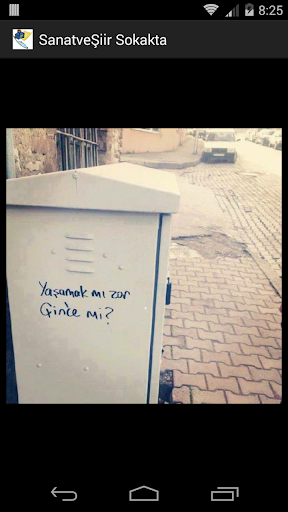 8:25
SanatveŞiir Sokakta
Yaşamak mı zor
Çince mi?